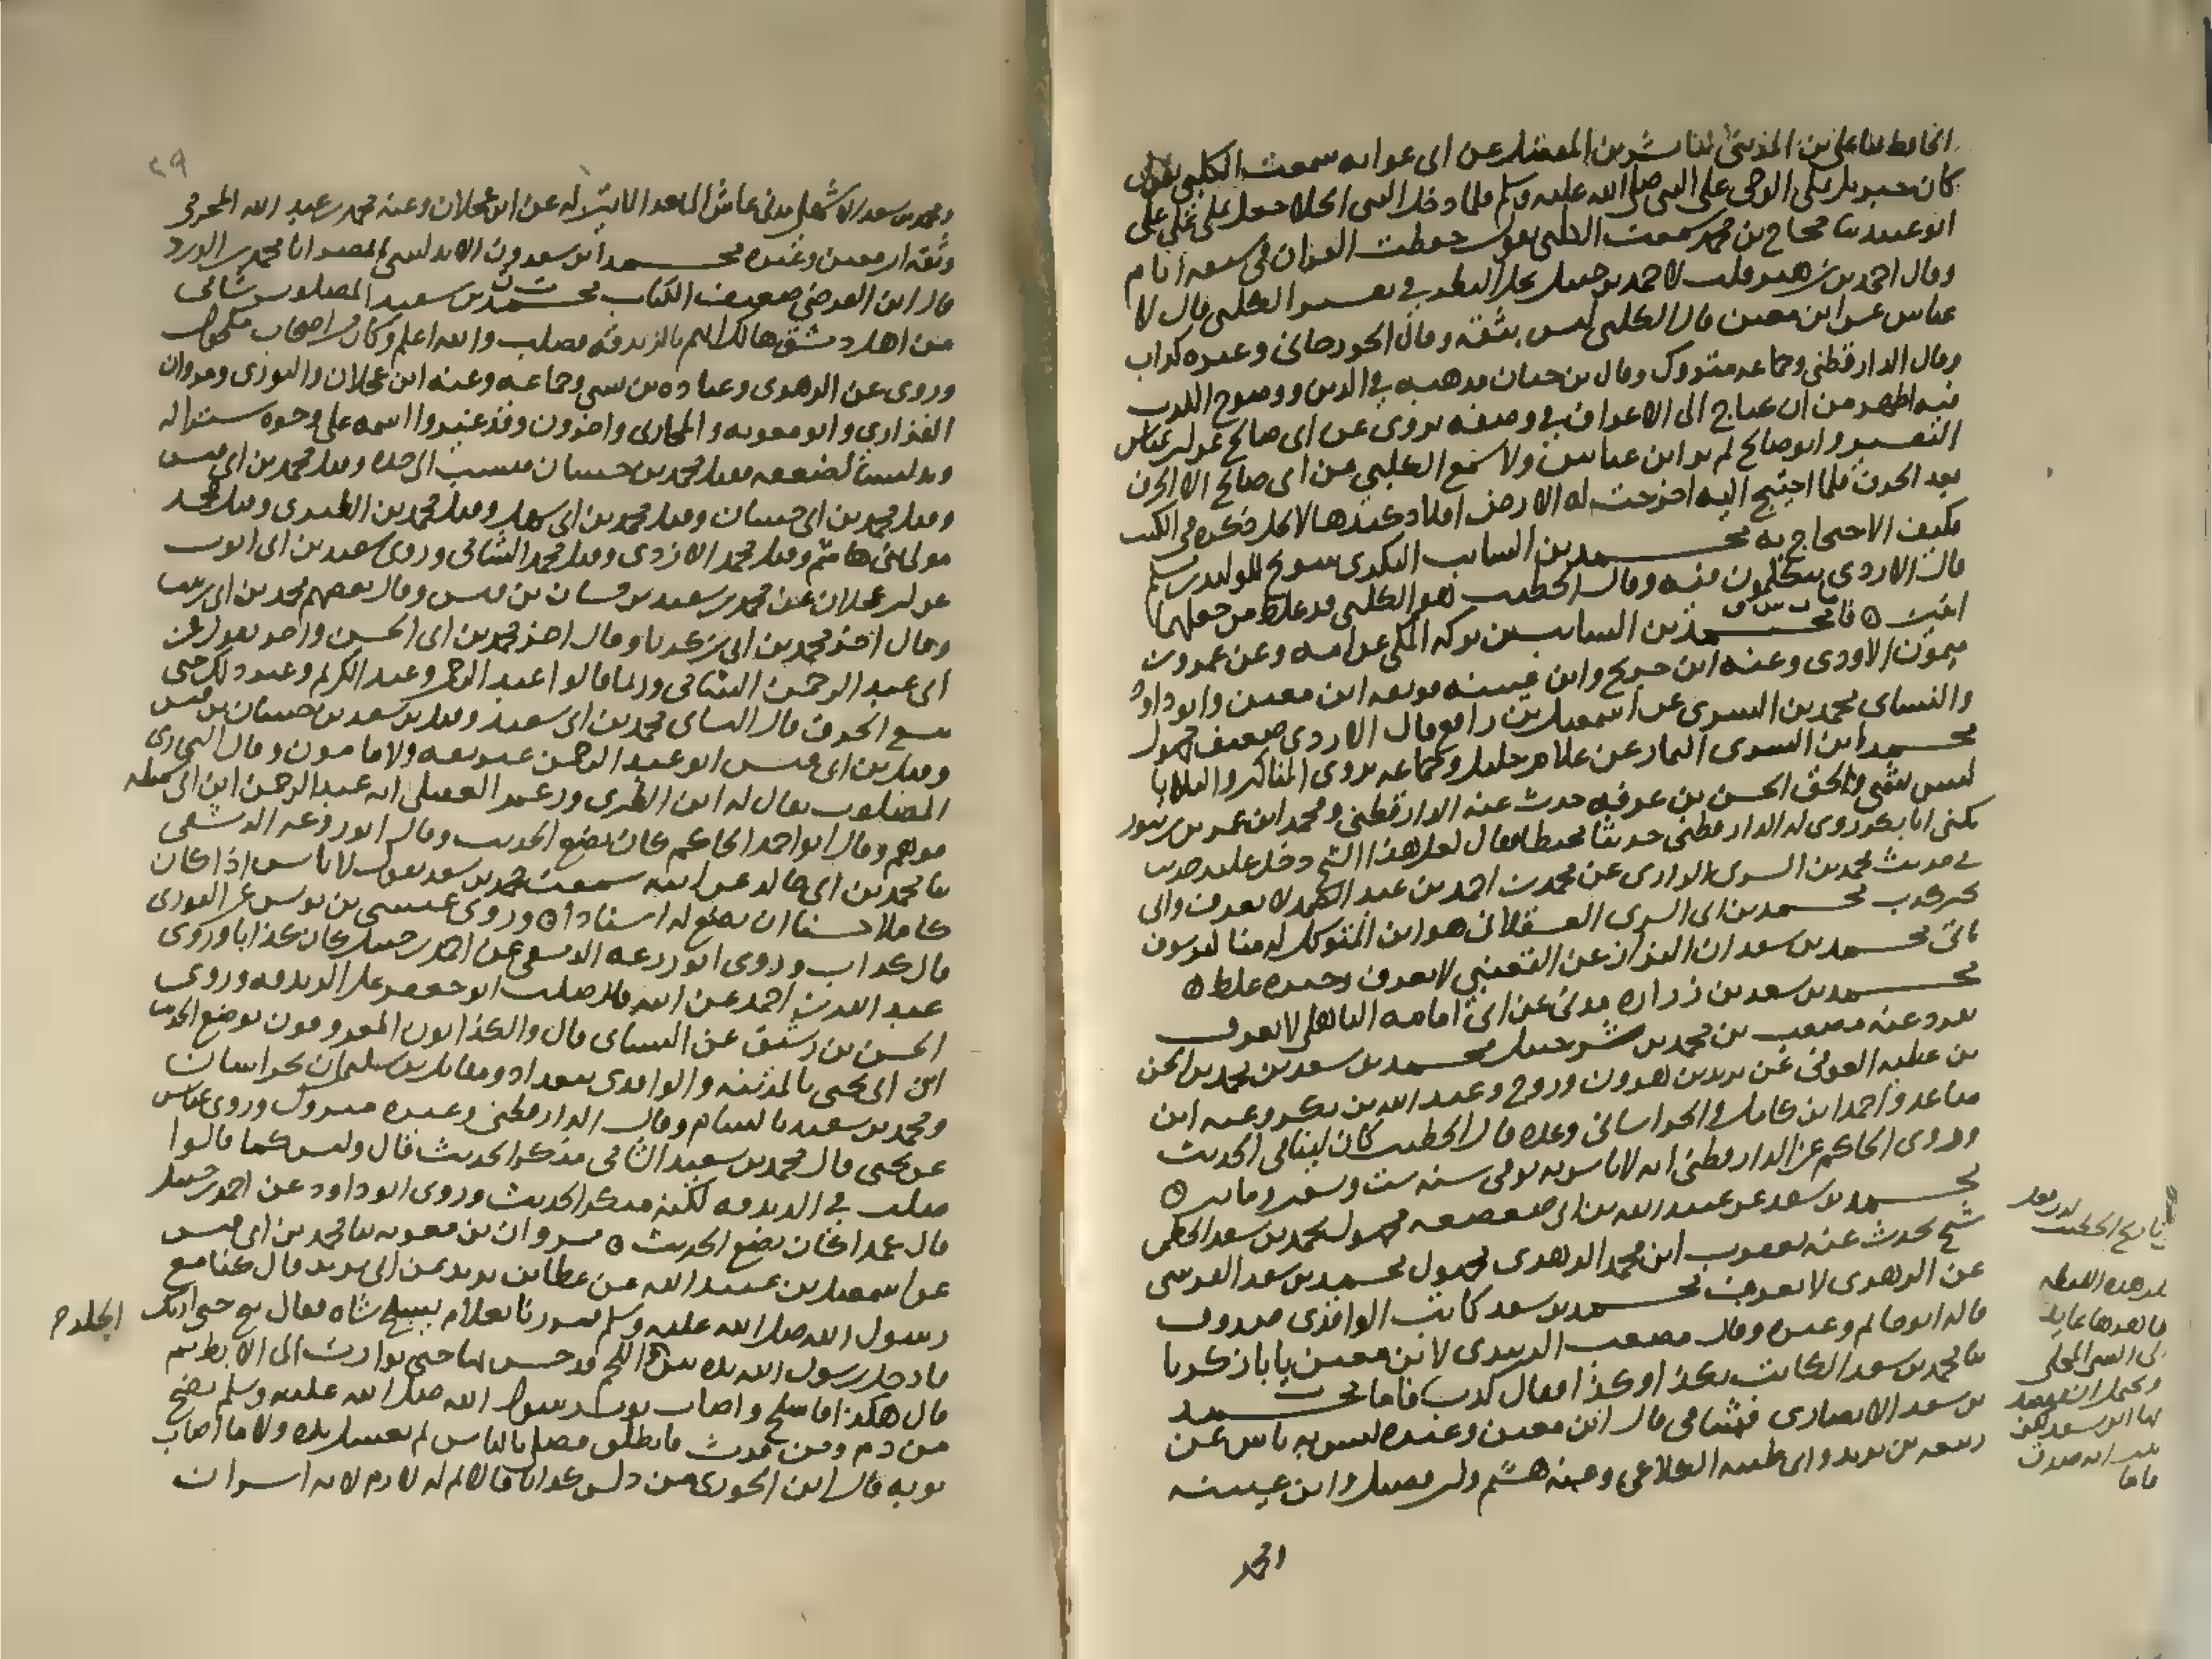 الحافظ ثنا علي بن المديني ثنا بشر بن المفضل عن ابي عوانه سمعت الكلبي يقول
كان جبريل يملي الوحي على النبي صلى الله عليه وسلم فلما دخل النبي الخلا جعل يملي على علي
ابو عبيد ثنا حجاج بن محمد سمعت الكلبي يقول حفظت القران في سبعه ايام
وقال احمد بن زهير قلت لاحمد بن حنبل يحل النظر في تفسير الكلبي قال لا
عباس عن ابن معين قال الكلبي ليس بثقه وقال الجوزجاني وغيره كذاب
وقال الدارقطني وجماعه متروك وقال بن حبان مذهبه في الدين ووضوح الكذب
فيه اظهر من ان يحتاج الى الاغراق في وصفه يروي عن ابي صالح عن ابن عباس
التفسير وابو صالح لم ير ابن عباس ولا سمع الكلبي من ابي صالح الا الحرف
بعد الحرف فلما احتيج اليه اخرجت له الارض افلاذ كبدها لا يحل ذكره في الكتب
فكيف الاحتجاج به محمد بن السايب البكري شيخ للوليد بن مسلم
قال الازدي يتكلمون فيه وقال الخطيب هو الكلبي وقد غلط من جعلهما
اثنين فاما محمد بن السايب بن بركه المكي عن امه وعن عمرو بن
ميمون الاودي وعنه ابن جريج وابن عيينه فوثقه ابن معين وابو داود
والنساي محمد بن السري عن اسمعيل بن رافع قال الازدي ضعيف مجهول
محمد ابن السري التمار عن غلام خليل وجماعه يروي المناكير والبلايا
ليس بشي ولحق الحسن بن عرفه حدث عنه الدارقطني ومحمد ابن عمر بن زنبور
يكنى ابا بكر روى له الدارقطني حديثا مخبطا فقال لعل هذا الشيخ دخل عليه حديث
في حديث محمد بن السري الرازي عن محمد بن احمد بن عبد الصمد لا يعرف واتى
بخبر كذب محمد بن ابي السري العسقلاني هو ابن المتوكل له مناكير وسوف
ياتي محمد بن سعدان البزاز عن القعنبي لا يعرف وخبره غلط
محمد بن سعد بن زراره مدني عن ابي امامه الباهلي لا يعرف
تفرد عنه مصعب بن محمد بن شرحبيل محمد بن سعد بن محمد بن الحسن
بن عطيه العوفي عن يزيد بن هرون وروح وعبد الله بن بكر وعنه ابن
صاعد واحمد ابن كامل والخراساني وعده قال الخطيب كان لينا في الحديث
وروى الحاكم عن الدارقطني انه لا باس به توفي سنه ست وسبعين وماتين
محمد بن سعد عن عبد الله بن ابي صعصعه مجهول محمد بن سعد الخطمي
شيخ حدث عنه يعقوب ابن محمد الزهري مجهول محمد بن سعد القرشي
عن الزهري لا يعرف محمد بن سعد كاتب الواقدي صدوق
قاله ابو حاتم وغيره وقال مصعب الزبيري لابن معين يا با زكريا
ثنا محمد بن سعد الكاتب بكذا وكذا فقال كذب فاما محمد
بن سعد الانصاري فشامي قال ابن معين وغيره ليس به باس عن
ربيعه بن يزيد وابي ظبيه الكلاعي وعنه هشيم وابن فضيل وابن عيينه
ومحمد بن سعد الاشهلي مدني عاش الى بعد المايتين له عن ابن عجلان وعنه محمد بن عبد الله المخرمي
وثقه ابن معين وغيره محمد ابن سعدون الاندلسي
قال ابن الفرضي ضعيف الكتاب محمد بن سعيد المصلوب شامي
من اهل دمشق هالك اتهم بالزندقه فصلب والله اعلم وكان من اصحاب مكحول
وروى عن الزهري وعباده بن نسي وجماعه وعنه ابن عجلان والثوري ومروان
الفزاري وابو معويه والمحاربي واخرون وقد غيروا اسمه على وجوه سترا له
وتدليسا لضعفه فقيل محمد بن حسان فنسب الى جده وقيل محمد بن ابي قيس
وقيل محمد بن ابي حسان وقيل محمد بن ابي سهل وقيل محمد بن الطبري وقيل محمد
مولى بني هاشم وقيل محمد الازدي وقيل محمد الشامي وروى سعيد بن ابي ايوب
عن ابن عجلان عن محمد بن سعيد بن حسان بن قيس وقال بعضهم محمد بن ابي زينب
وقال اخر محمد بن ابي زكريا وقال اخر محمد بن ابي الحسن واخر يقول عن
ابي عبد الرحمن الشامي وربما قالوا عبد الرحمن وعبد الكريم وغير ذلك حتى
يتسع الخرق قال النساي محمد بن ابي سعيد وقيل بن سعد بن حسان بن قيس
وقيل بن ابي قيس ابو عبد الرحمن غير ثقه ولا مامون وقال البخاري
المصلوب يقال له ابن الطبري وزعم العقيلي انه عبد الرحمن ابن ابي شميله
فوهم وقال ابو احمد الحاكم كان يضع الحديث وقال ابو زرعه الدمشقي
ثنا محمد بن ابي خالد عن ابيه سمعت محمد بن سعد يقول لا باس اذا كان
كلاما حسنا ان يضع له اسنادا وروى عيسى بن يونس عن الثوري
قال كذاب وروى ابو زرعه الدمشقي عن احمد بن حنبل كان كذابا وروى
عبد الله بن احمد عن ابيه قال صلبه ابو جعفر على الزندقه وروى
الحسن بن رشيق عن النساي قال والكذابون المعروفون بوضع الحديث
ابن ابي يحيى بالمدينه والواقدي ببغداد ومقاتل بن سليمان بخراسان
ومحمد بن سعيد بالشام وقال الدارقطني وغيره متروك وروى عباس
عن يحيى قال محمد بن سعيد الشامي منكر الحديث قال وليس كما قالوا
صلب في الزندقه لكنه منكر الحديث وروى ابو داود عن احمد بن حنبل
قال عمدا كان يضع الحديث مروان بن معويه ثنا محمد بن ابي قيس
عن اسمعيل بن عبيد الله عن عطا بن يزيد عن ابي يزيد قال كنا مع
رسول الله صلى الله عليه وسلم فمررنا بغلام يسلخ شاه فقال تنح حتى اريك
فادخل رسول الله يده بين الجلد واللحم فدحس بها حتى توارت الى الابط ثم
قال هكذا فاسلخ واصاب ثوب رسول الله صلى الله عليه وسلم نضح
من دم ومن فرث فانطلق فصلى بالناس لم يغسل يده ولا ما اصاب
ثوبه قال ابن الجوزي من دلس كذابا فالاثم له لازم لانه اسر ان